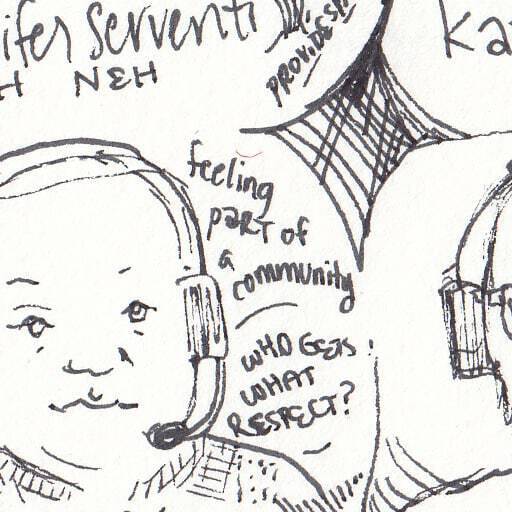 ifer Serventi
H NEH
PROVIDES!
Ka
feeling
PART of
a
community
WHO GETS
WHAT
RESPECT?